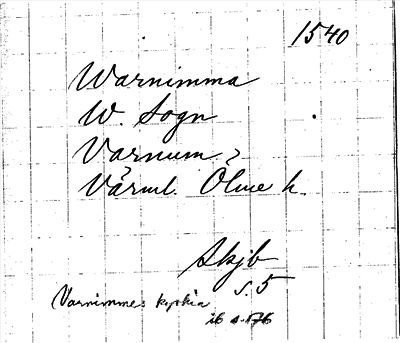 1540
Warnimma
W. Sogn
Varnum ?
Värml. Ölme h.
Skjb
s. 5
Varnimmes kyrkia
ib s. 176